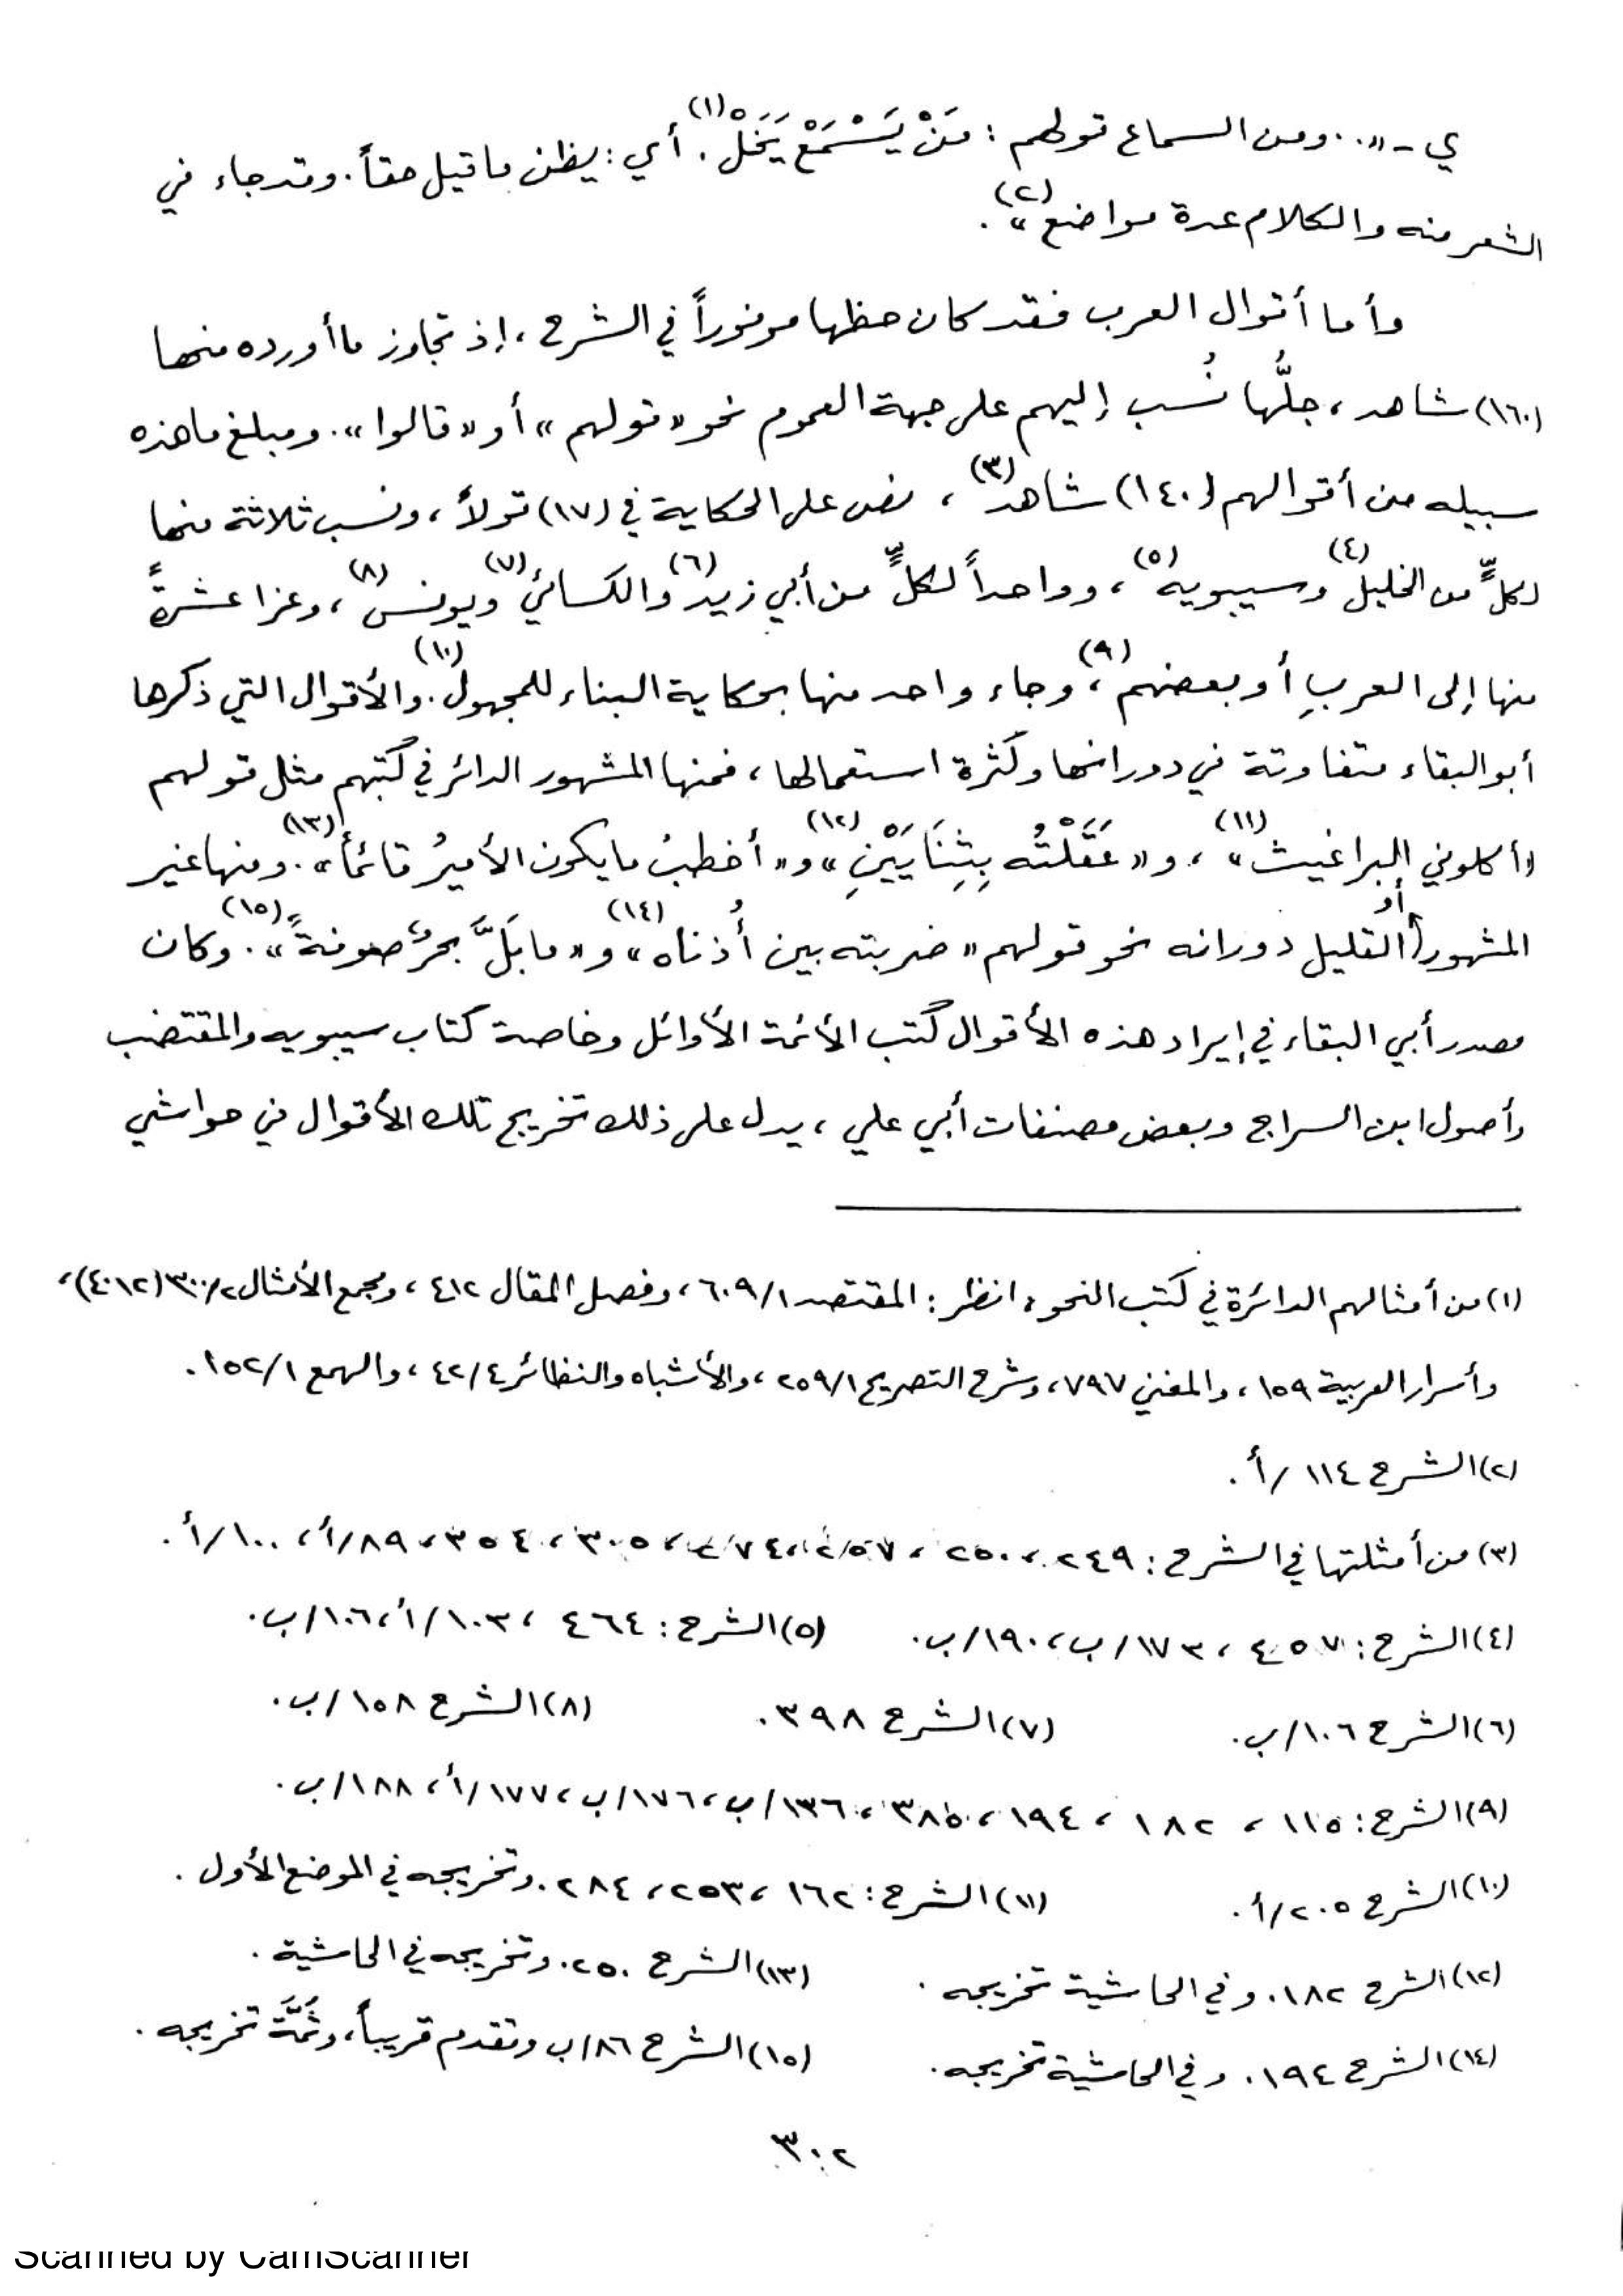 ي - «.. ومن السماع قولهم : مَنْ يَسْمَعْ يَخَلْ(١). أي : يظن ما قيل حقاً. وقد جاء في
الشعر منه والكلام عدة مواضع»(٢).
وأما أقوال العرب فقد كان حظها موفوراً في الشرح ، إذ تجاوز ما أورده منها
(١٦٠) شاهد ، جلُّها نُسب إليهم على جهة العموم نحو «قولهم» أو «قالوا». ومبلغ ما هذه
سبيله من أقوالهم (١٤٠) شاهد(٣) ، نص على الحكاية في (١٧) قولاً ، ونسب ثلاثة منها
لكلٍّ من الخليل(٤) وسيبويه(٥) ، وواحداً لكلٍّ من أبي زيد(٦) والكسائي(٧) ويونس(٨) ، وعزا عشرةً
منها إلى العربِ أو بعضهم(٩) ، وجاء واحد منها بحكاية البناء للمجهول(١٠). والأقوال التي ذكرها
أبو البقاء متفاوتة في دورانها وكثرة استعمالها ، فمنها المشهور الدائر في كتبهم مثل قولهم
«أكلوني البراغيث»(١١) ، و «عَقَلْتُه بِثِنَايَيْنِ»(١٢) و «أخطبُ ما يكون الأميرُ قائماً»(١٣). ومنها غير
المشهور أو القليل دورانه نحو قولهم «ضربته بين أُذناه»(١٤) و «ما بَلَّ بحرٌ صوفةً»(١٥). وكان
مصدر أبي البقاء في إيراد هذه الأقوال كتب الأئمة الأوائل وخاصة كتاب سيبويه والمقتضب
وأصول ابن السراج وبعض مصنفات أبي علي ، يدل على ذلك تخريج تلك الأقوال في حواشي
(١) من أمثالهم الدائرة في كتب النحو ، انظر : المقتصد ٦٠٩/١ ، وفصل المقال ٤١٢ ، ومجمع الأمثال ٣٠٠/٢ (٤٠١٢) ،
وأسرار العربية ١٥٩ ، والمغني ٧٩٧ ، وشرح التصريح ٢٥٩/١ ، والأشباه والنظائر ٤٢/٤ ، والهمع ١٥٢/١ .
(٢) الشرح ١١٤ /أ .
(٣) من أمثلتها في الشرح : ٢٤٩ ، ٢٥٠ ، ٢٥٧ ، ٢٧٤ ، ٣٠٥ ، ٣٥٤ ، ٨٩/أ ، ١٠٠/أ .
(٤) الشرح : ٤٥٧ ، ١٧٣/ب ، ١٩٠/ب . (٥) الشرح : ٤٦٤ ، ١٠٣/أ ، ١٠٦/ب .
(٦) الشرح ١٠٦/ب . (٧) الشرح ٣٩٨ . (٨) الشرح ١٥٨/ب .
(٩) الشرح : ١١٥ ، ١٨٢ ، ١٩٤ ، ٣٨٥ ، ١٣٦/ب ، ١٧٦/ب ، ١٧٧/أ ، ١٨٨/ب .
(١٠) الشرح ٢٠٥/أ . (١١) الشرح : ١٦٢ ، ٢٥٣ ، ٢٨٤ . وتخريجه في الموضع الأول .
(١٢) الشرح ١٨٢ . وفي الحاشية تخريجه . (١٣) الشرح ٢٥٠ . وتخريجه في الحاشية .
(١٤) الشرح ١٩٤ . وفي الحاشية تخريجه . (١٥) الشرح ٨٦/ب وتقدم قريباً ، وثَمَّةَ تخريجه .
٣٠٢
Scanned by CamScanner